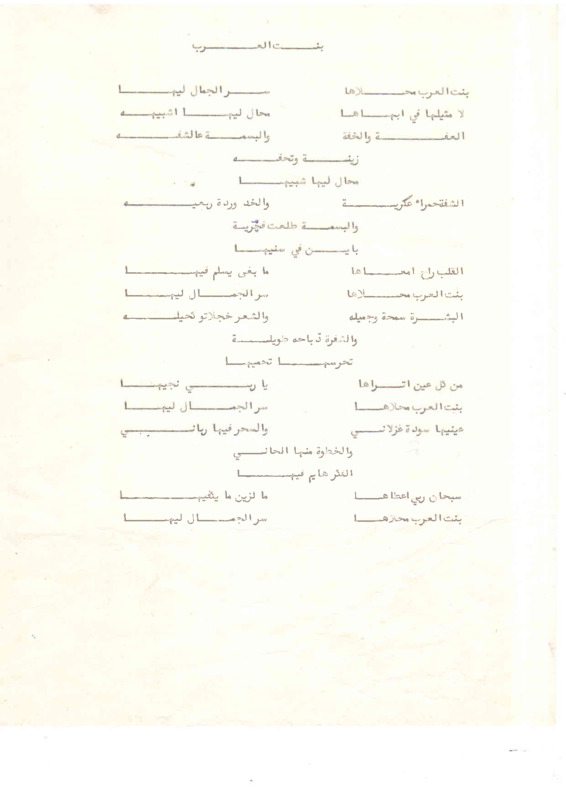 بنت العرب
بنت العرب محلاها سر الجمال ليها
لا مثيلها في ابهاها محال ليها اشبيه
العفة والخفة والبسمة عالشفه
زينة وتحفه
محال ليها شبيها
الشفة حمراء عكرية والخد وردة ربعيه
والبسمة طلعت فجرية
باين في سنيها
القلب راغ امعاها ما بغى يسلم فيها
بنت العرب محلاها سر الجمال ليها
البشرة سمحة وجميله والشعر خجلاتو تحيله
والشفرة ذباحه طويلة
تحرسها تحميها
من كل عين اتراها يا ربي نجيها
بنت العرب محلاها سر الجمال ليها
عينيها سودة غزلاني والسحر فيها رباني
والخطوة منها الحاني
الفكر هايم فيها
سبحان ربي اعطاها ما لزين ما يكفيها
بنت العرب محلاها سر الجمال ليها